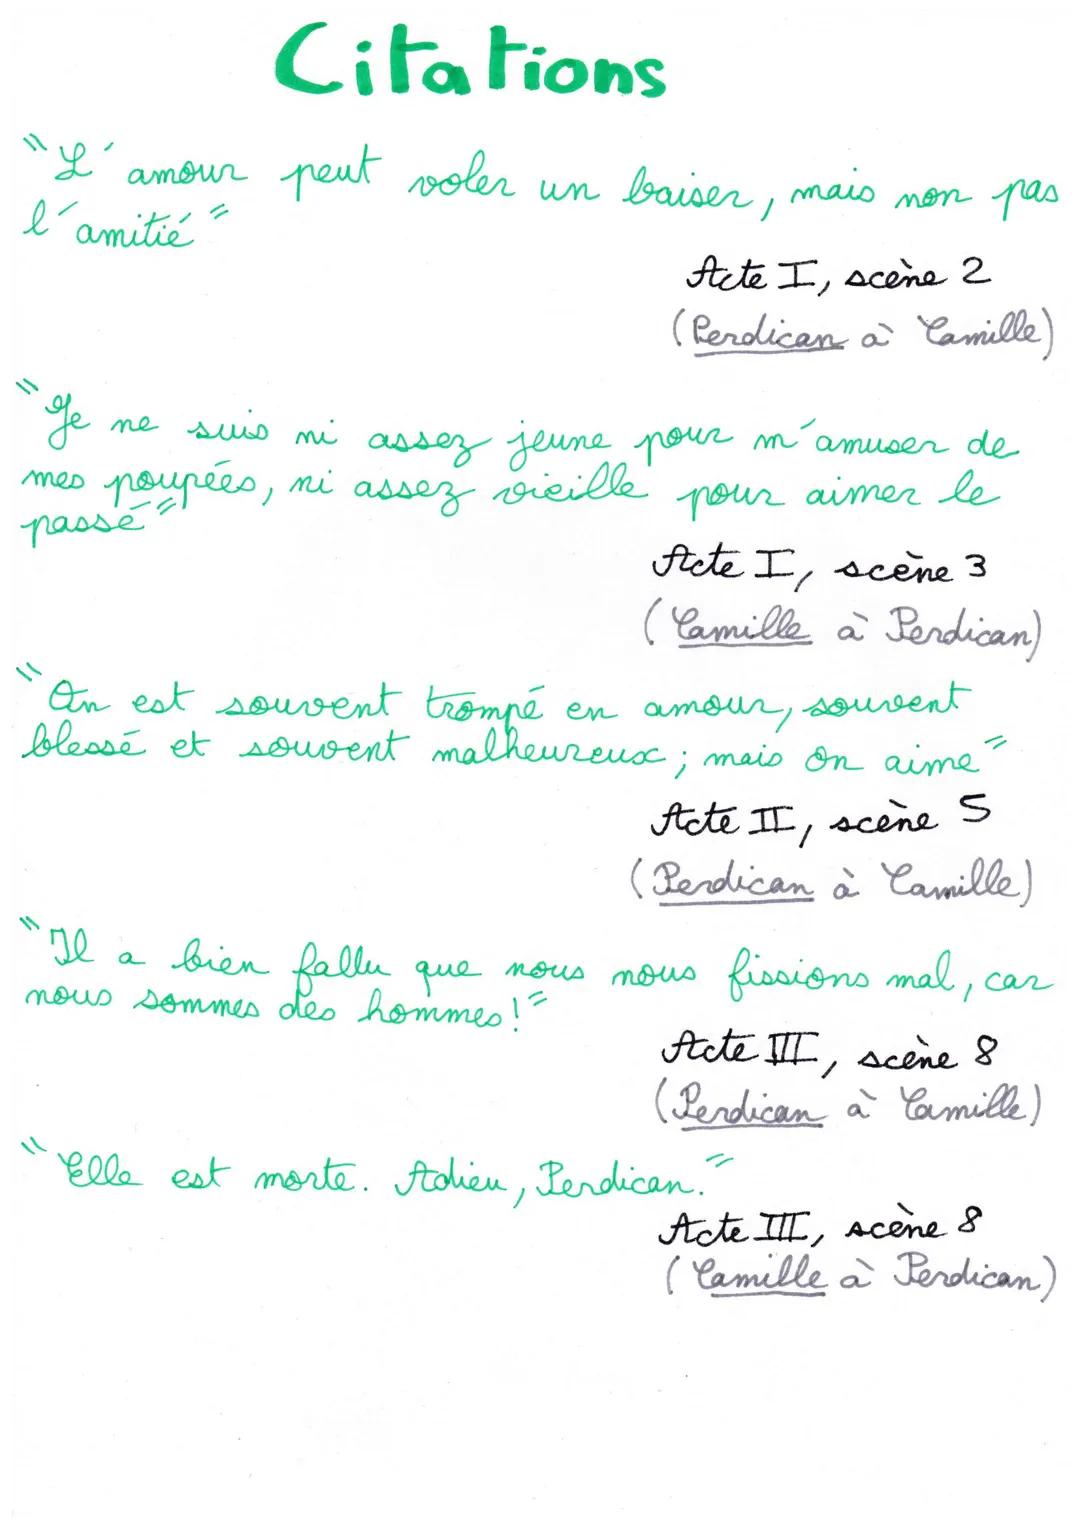 Citations
"L'amour peut voler un baiser, mais non pas
l'amitié"
Acte I, scène 2
(Perdican à Camille)
"Je ne suis ni assez jeune pour m'amuser de
mes poupées, ni assez vieille pour aimer le
passé"
Acte I, scène 3
(Camille à Perdican)
"On est souvent trompé en amour, souvent
blessé et souvent malheureux ; mais on aime"
Acte II, scène 5
(Perdican à Camille)
"Il a bien fallu que nous nous fissions mal, car
nous sommes des hommes!"
Acte III, scène 8
(Perdican à Camille)
"Elle est morte. Adieu, Perdican."
Acte III, scène 8
(Camille à Perdican)